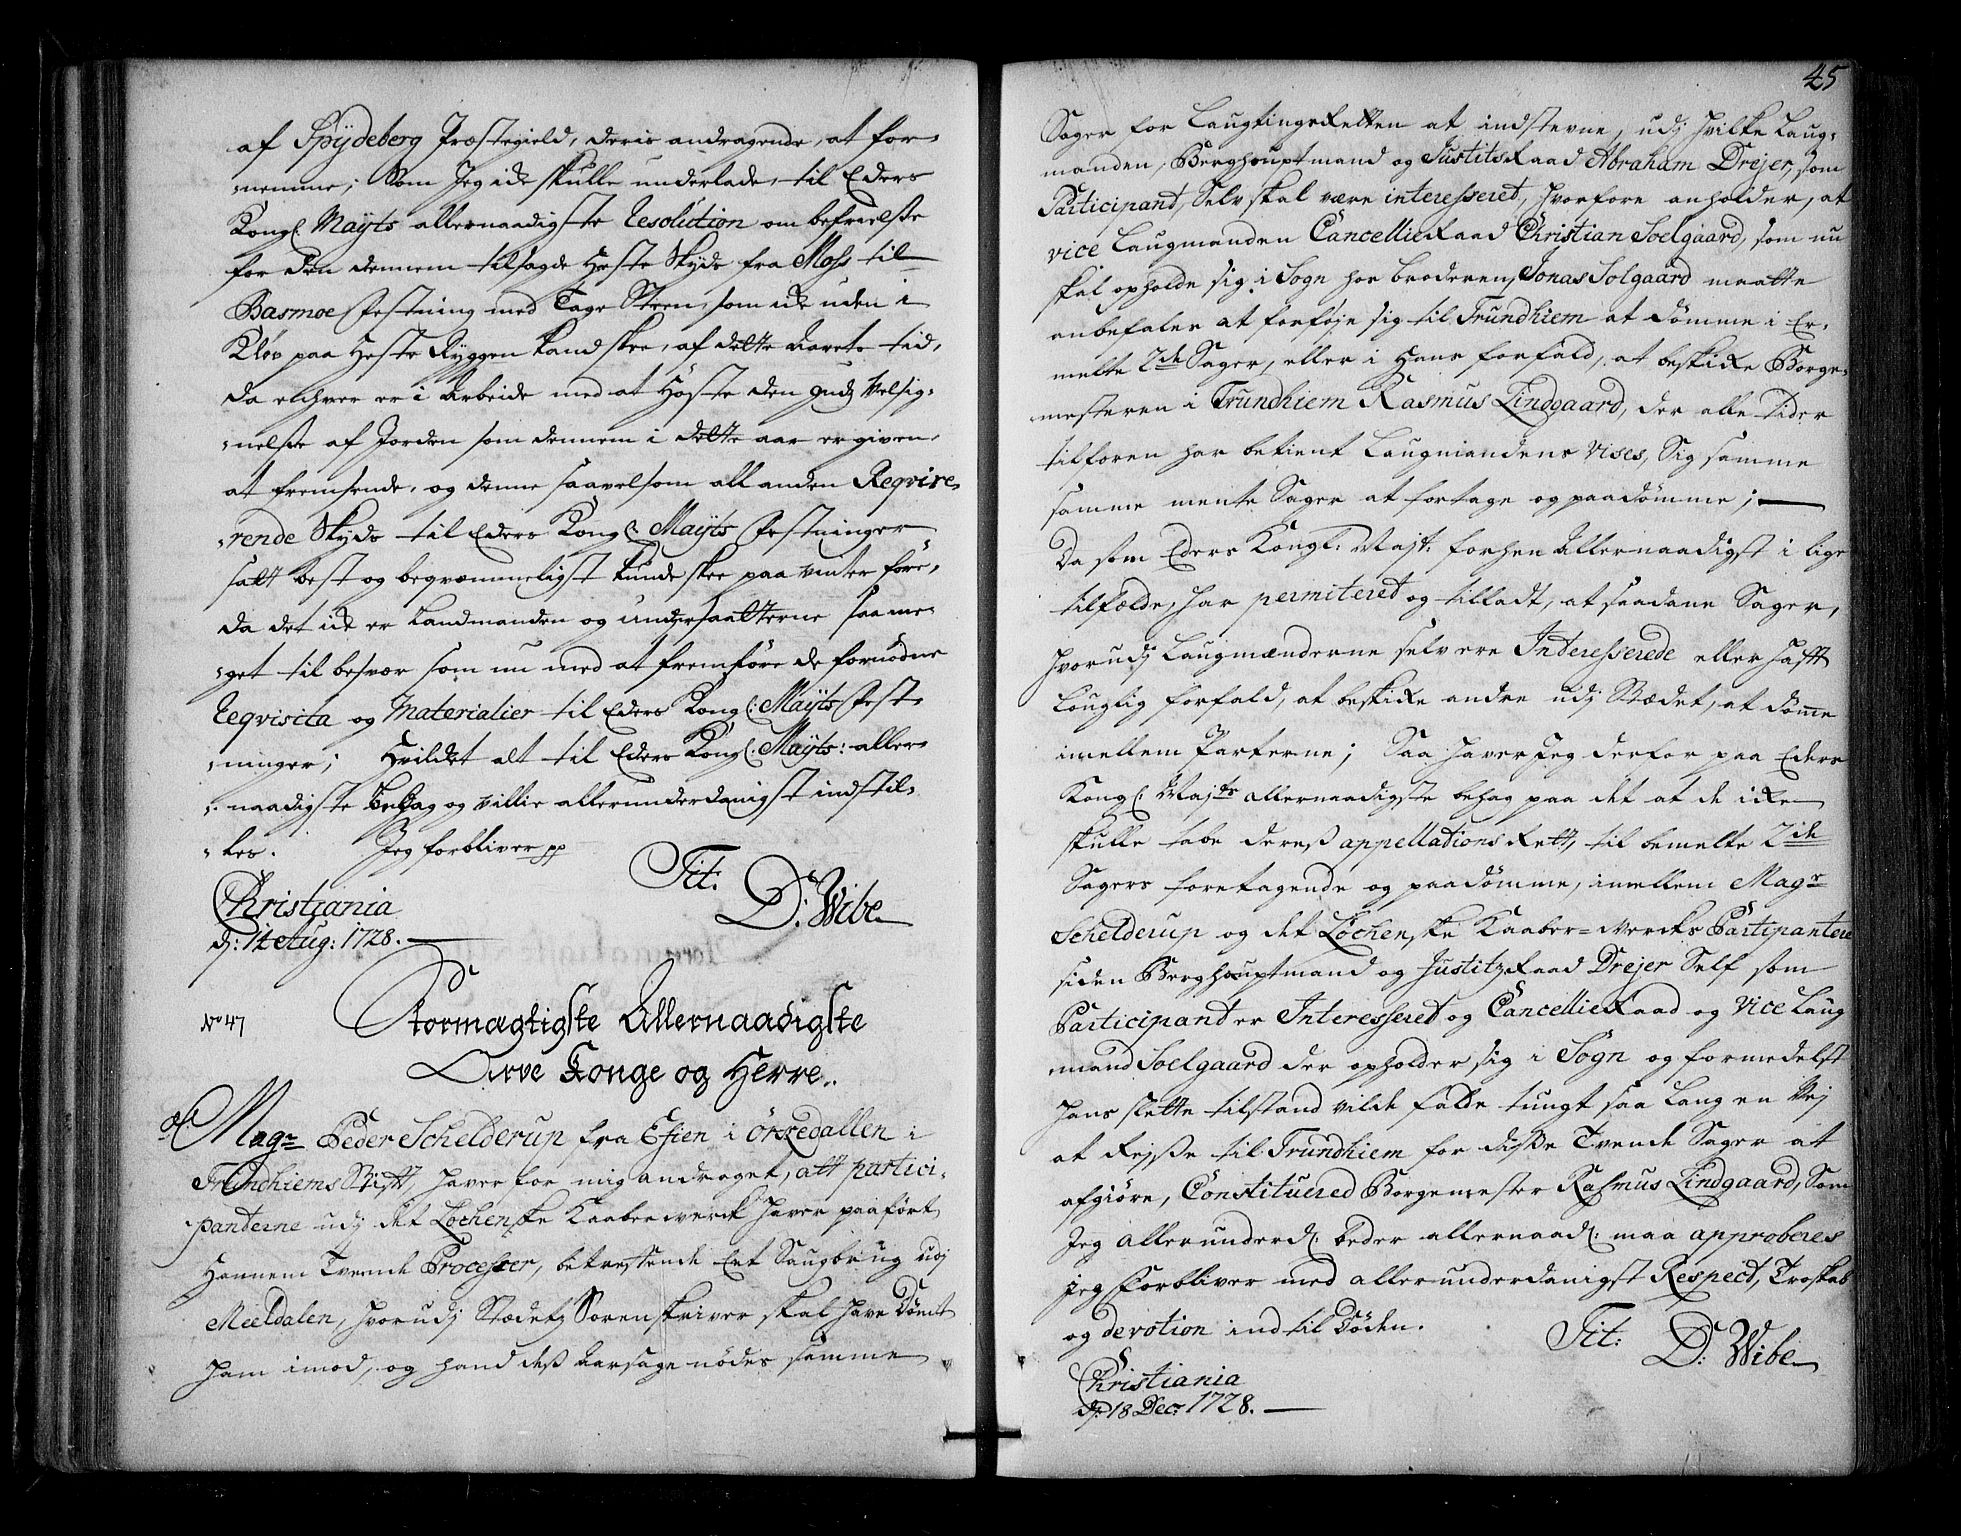 af Spÿdeberg Præstegield, deris andragende, at for-
-nemme; Som Jeg icke skulle underlade, til Eders
Kongl. Maÿts allernaadigste Resolution om befrielse
for den dennem tilsagde Heste Skyds fra Moss til
Basmoe Festning med Tage Steen, som icke uden i
Kløv paa Heste Ryggen kand skee, af dette Aarets tid,
da enhver er i Arbeide med at Høste den gudz Velsig-
-nelse af Jorden som dennem i dette aar er given,
at fremsende, og denne saavelsom all anden Reqvire-
-rende Skyds til Eders Kongl. Maÿts Festninger
satt best og begvæmmeligst kunde skee paa vinter føre,
da det icke er Landmanden og undersaatterne saa me-
-get til besvær som nu med at fremføre de fornødne
Reqvisita og Materialier til Eders Kongl: Maÿts Fest-
-ninger; Hvilcket alt til Eders Kongl. Maÿts: aller-
-naadigste Behag og villie allerunderdanigst indstil-
-les. Jeg forbliver pp
Tit: D: Wibe
Christiania
d: 14 Aug: 1728.
No 47
Stormægtigste Allernaadigste
Arve Konge og Herre.
Magr Peder Schelderup fra Efien i Örkedallen i
Trundhiems Stift, haver for mig andraget, att partici-
panterne udj det Löchenske Kaaberverck haver paaført
Hannem Tvende Processer, betreffende Eet Saugbrug udj
Meeldalen, hvorudj Stædetz Sorenskriver skal have Dömt
ham imod, og hand dess Aarsage nödes samme
45
Sager for Laugtings Retten at indstevne, udj hvilke Laug-
manden, Berghouptmand og Justits Raad Abraham Drejer, som
Participant, Selv skal være interesseret, hvorfore anholder, at
vice Laugmanden Cancellie Raad Christian Soelgaard, som nu
skal opholde sig i Sogn hos broderen Jonas Solgaard maatte
anbefales at forføje sig til Trundhiem at dömme i Er-
melte 2de Sager, eller i Hans forfald, at beskicke Borge-
mesteren i Trundhiem Rasmus Lindgaard, der alle Tider
tilforen har betient Laugmandens vises, Sig samme
samme mente Sager at fortage og paadömme;
Da som Eders Kongl: Majt. forhen Allernaadigst i lige
tilfælde, har permiteret og tilladt, at saadane Sager,
hvorudj Laugmænderne selv ere Interesserede eller hafft
Louglig forfald, at beskicke andre udj Stædet, at döme
imellem Parterne; Saa haver Jeg derfor paa Eders
Kongl. Majts allernaadigste behag paa det at de icke
skulle tabe deres appellations Rett, til bemelte 2de
Sagers foretagende og paadömme, imellem Magr
Schelderup og det Löchenske Kaaber-vercks Partipantere
siden Berghouptmand og Justitz Raad Drejer Self som
Participant er Interesseret og Cancellie Raad og Vice Laug
mand Soelgaard der opholder sig i Sogn og formedelst
hans slette tilstand vilde falde tungt saa Lang en Vej
at Rejse til Trundhiem for disse Tvende Sager at
afgiöre, Constituered Borgemester Rasmus Lindgaard, Som
Jeg allerunderd. beder allernaad: maa approberes
jeg Forbliver med allerunderdanigst Respect, Troskab
og devotion ind til Döden.
Tit: D: Wibe
Christiania
d: 18 Decr 1728.